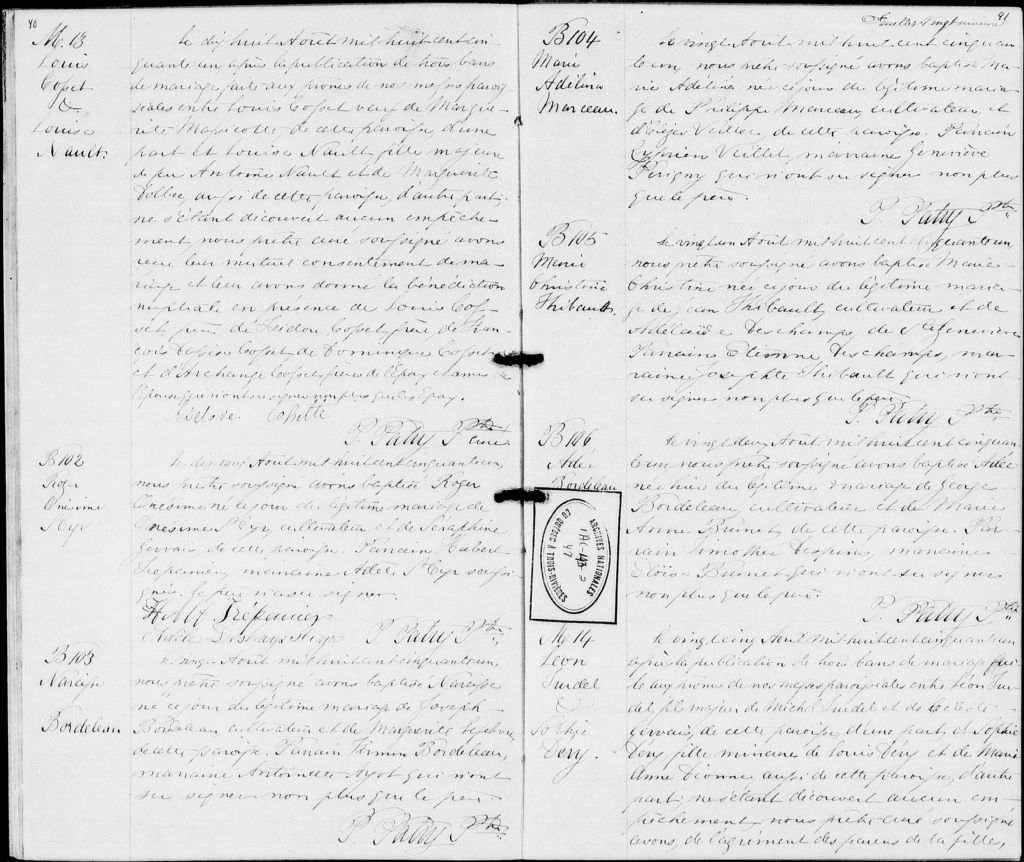 40
M. 13
Louis
Cosset
&
Louise
Nault.
Le dix huit Août mil huit cent cin
quante un après la publication de trois bans
de mariage faite aux prônes de nos messes parois
siales entre Louis Cosset veuf de Margue
rite Massicotte de cette paroisse d'une
part et Louise Nault, fille majeure
de feu Antoine Nault et de Marguerite
Dolbec, aussi de cette paroisse, d'autre part;
ne s'étant découvert aucun empêche
ment, nous prêtre curé soussigné avons
reçu leur mutuel consentement de ma
riage et leur avons donné la bénédiction
nuptiale en présence de Louis Cos
set, père, de Isidore Cosset, frère, de Fran
çois Cosset, de Dominique Cosset
et d'Archange Cosset, frères de l'Epoux et amis de
l'Epouse qui n'ont su signer non plus que les Epoux.
P. Patry Ptre
curé
B 102
Roger
Onésime
St Cyr
Le dix neuf Août mil huit cent cinquante un,
nous prêtre soussigné avons baptisé Roger
Onésime né ce jour du légitime mariage de
nésime St Cyr, cultivateur et de Séraphine
Gervais de cette paroisse. Parrain Hubert
Trépanier, marraine Adèle St Cyr soussi
gnés. le père n'a su signer.
Trépanier
P. Patry Ptre
B 103
Narcisse
Bordeleau
Le vingt Août mil huit cent cinquante un,
nous prêtre soussigné avons baptisé Narcisse
né ce jour du légitime mariage de Joseph
Bordeleau cultivateur et de Marguerite Lefebvre
de cette paroisse. Parrain Firmin Bordeleau,
marraine Antoinette Ayot qui n'ont
su signer non plus que le père.
P. Patry Ptre
41
Feuillet vingt unième
B 104
Marie
Adélina
Marceau.
Le vingt Août mil huit cent cinquan
te un, nous prêtre soussigné avons baptisé Ma
rie Adélina née ce jour du légitime maria
ge de Philippe Marceau, cultivateur, et
Veillet, de cette paroisse. Parrain
Cyprien Veillet, marraine Geneviève
Périgny qui n'ont su signer non plus
que le père.
P. Patry Ptre
B 105
Marie
Christine
Thibault.
Le vingt un Août mil huit cent cinquante un,
nous prêtre soussigné avons baptisé Marie
Christine née ce jour du légitime maria
ge de Jean Thibault, cultivateur et de
Adélaïde Deschamps, de Ste Geneviève
Parrain Etienne Deschamps, mar
raine Josephte Thibault qui n'ont
su signer non plus que le père.
P. Patry Ptre
B 106
Adée
Bordeleau
Le vingt deux Août mil huit cent cinquan
te un, nous prêtre soussigné avons baptisé Adée
née hier du légitime mariage de George
Bordeleau, cultivateur et de Marie
Anne Brunet de cette paroisse. Par
rain Timothée Despins, marraine
Eloïse Brunet qui n'ont su signer
non plus que le père.
P. Patry Ptre
ARCHIVES NATIONALES
DU QUÉBEC À TROIS-RIVIÈRES
47
M 14
Léon
Trudel
&
Sophie
Véry.
Le vingt cinq Août mil huit cent cinquante un
après la publication de trois bans de mariage fai
te aux prônes de nos messes paroissiales entre Léon Tru
del, fils majeur de Michel Trudel et de Céleste
Gervais, de cette paroisse, d'une part, et Sophie
Véry, fille mineure de Louis Véry et de Marie
Anne Dionne, aussi de cette paroisse, d'autre
part; ne s'étant découvert aucun em
pêchement, nous prêtre curé soussigné
avons, de l'agrément des parens de la fille,